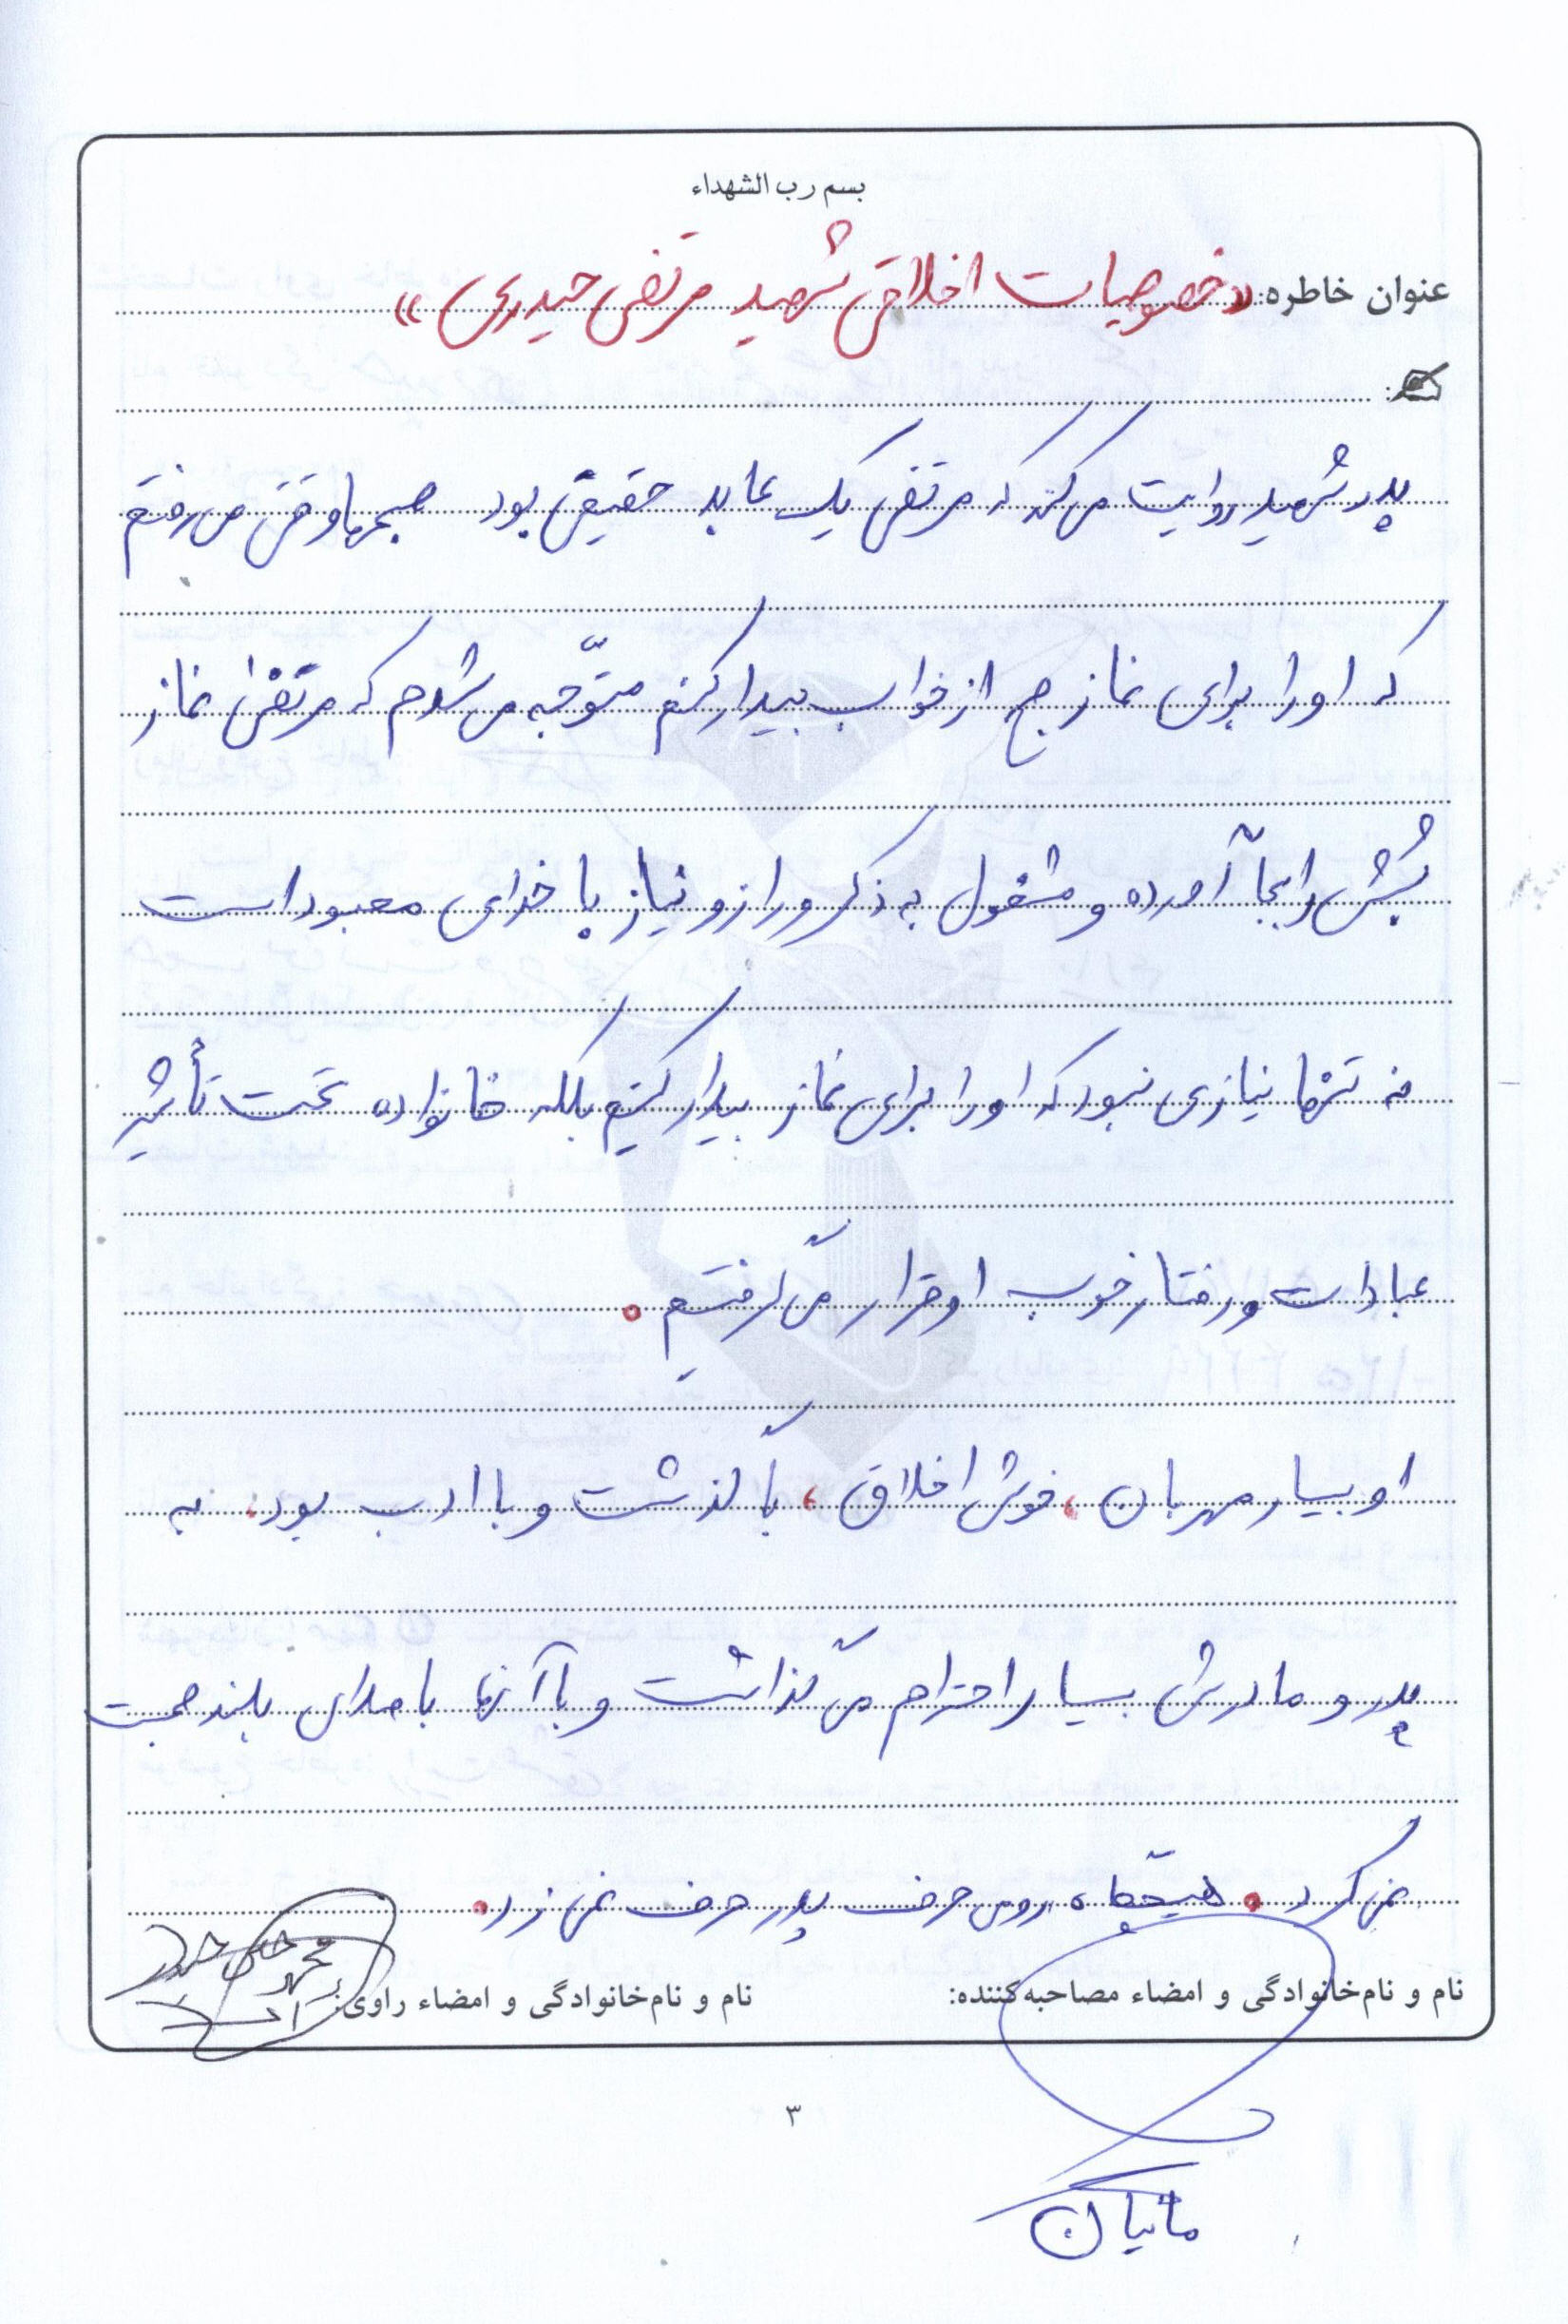 بسم رب الشهداء
عنوان خاطره: «خصوصیات اخلاقی شهید مرتضی حیدری»
پدر شهید روایت می‌کند که مرتضی یک عابد حقیقی بود صبحها وقتی می‌رفتم
که او را برای نماز صبح از خواب بیدار کنم متوّجه می‌شدم که مرتضی نماز
شبش را بجا آورده و مشغول به ذکر و راز و نیاز با خدای معبود است
نه تنها نیازی نبود که او را برای نماز بیدار کنیم بلکه خانواده تحت تأثیر
عبادات و رفتار خوب او قرار می‌گرفتیم.
او بسیار مهربان، خوش اخلاق، با گذشت و با ادب بود. به
پدر و مادرش بسیار احترام می‌گذاشت و با آنها با صدای بلند صحبت
نمی‌کرد. هیچگاه روی حرف پدر حرف نمی‌زد.
نام و نام‌خانوادگی و امضاء مصاحبه‌کننده:
نام و نام‌خانوادگی و امضاء راوی:
۳